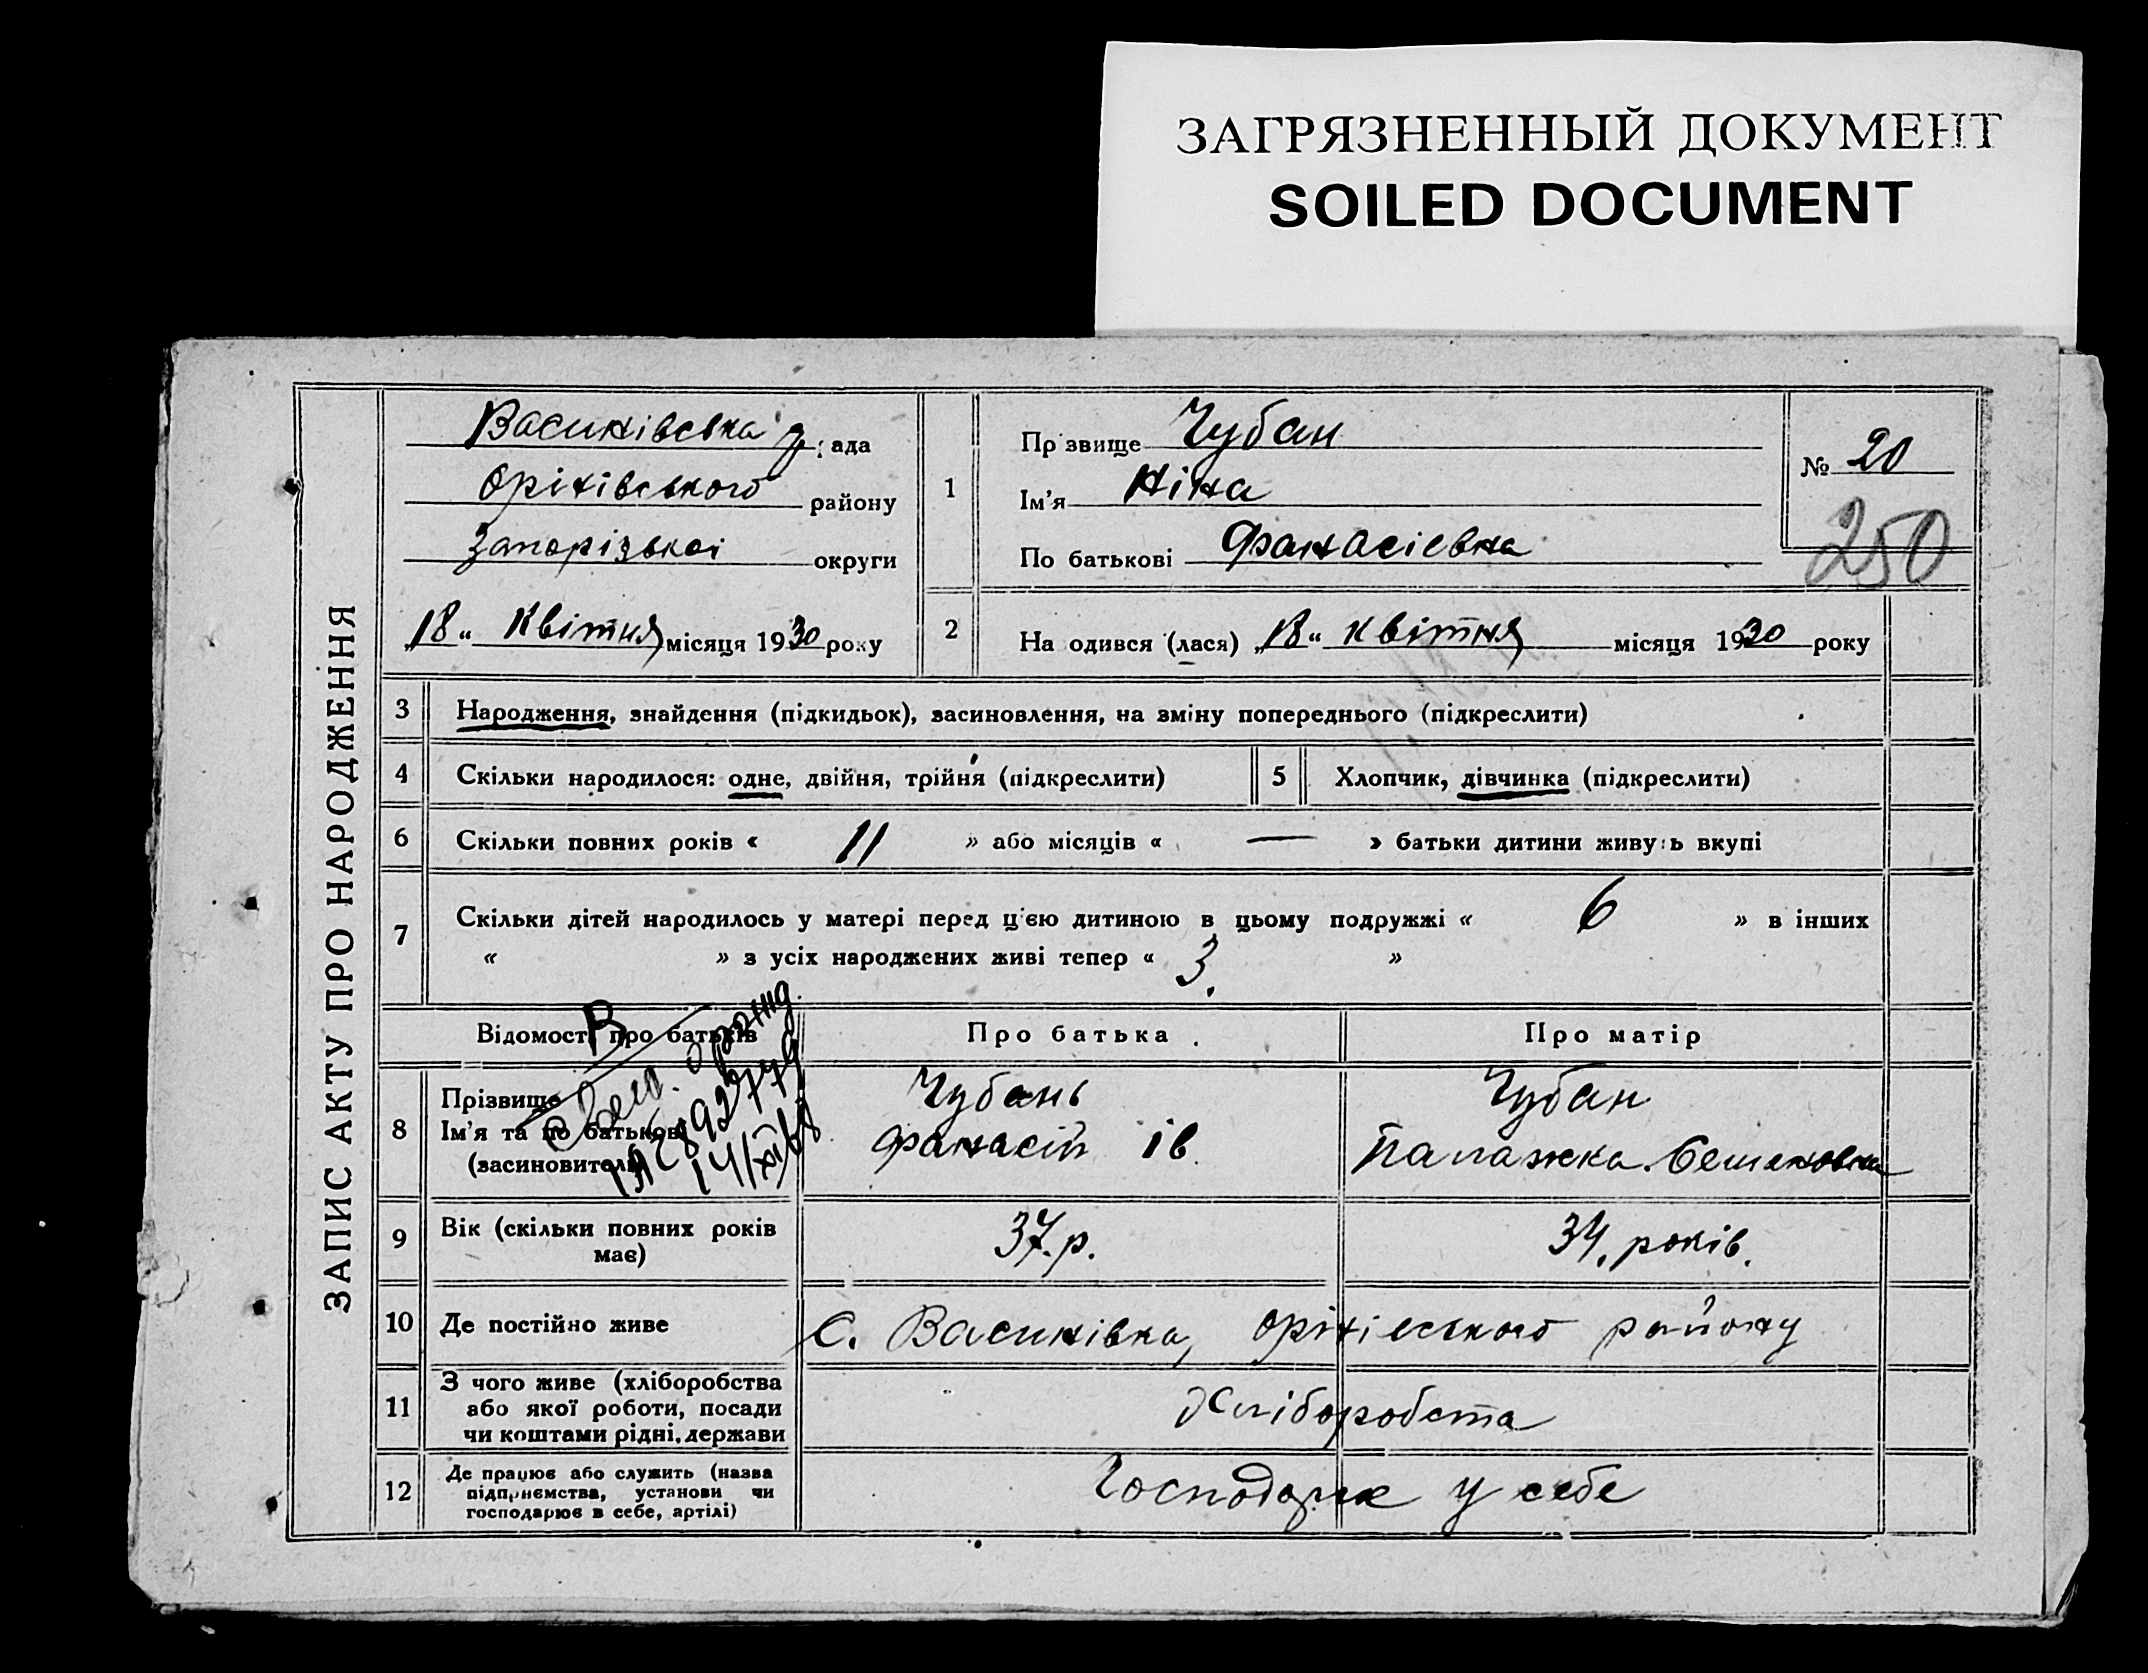 ЗАГРЯЗНЕННЫЙ ДОКУМЕНТ
SOILED DOCUMENT
ЗАПИС АКТУ ПРО НАРОДЖЕННЯ
Васинівська р ада
Оріхівського району
Запорізької округи
„18“ Квітня місяця 1930 року
1
Прізвище Чубан
Ім’я Ніна
По батькові Фанасієвна
№ 20
250
2 На одився (лася) „18“ квітня місяця 1930 року
3 Народження, знайдення (підкидьок), засиновлення, на зміну попереднього (підкреслити)
4 Скільки народилося: одне, двійня, трійня (підкреслити) 5 Хлопчик, дівчинка (підкреслити)
6 Скільки повних років « 11 » або місяців « — » батьки дитини живуть вкупі
7 Скільки дітей народилось у матері перед цією дитиною в цьому подружжі « 6 » в інших
« » з усіх народжених живі тепер « 3. »
Відомості про батьків Про батька Про матір
8 Прізвище
Ім’я та по батькові
(засиновителі)
Чубань
Фанасій Ів
Чубан
Палажка
14/XII
9 Вік (скільки повних років
має)
37.р.
34. років.
10 Де постійно живе С. Васинівка, Оріхівського району
11 З чого живе (хліборобства
або якої роботи, посади
чи коштами рідні, держави
Хліборобста
12 Де працює або служить (назва
підприємства, установи чи
господарює в себе, артілі)
Господарює у себе